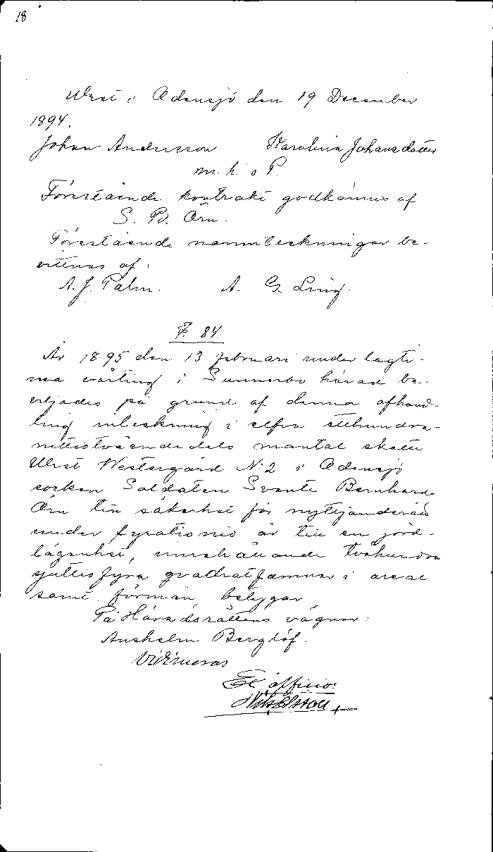 18
West i Odensjö den 19 December
1894.
Johan Andersson Karolina Johansdotter
m. h. o P
Förestående kontrakt godkännes af
S. B. Örn.
Förestående namnteckningar be-
vittnas af:
A. J. Palm. A. G. Ling.
§. 84.
År 1895 den 13 februari under lagti-
ma vårting i Sunnerbo härad be-
viljades på grund af denna afhand-
ling inteckning i elfva åttahundra-
nittiotvåendedels mantal skatte
West Westergård N:2 i Odensjö
socken Soldaten Svante Bernhard
Örn till säkerhet för nyttjanderätt
under fyrationio år till en jord-
lägenhet, innehållande tvåhundra
sjuttiofyra qvadratfamnar i areal
samt förmån, betygar
På Häradsrättens vägnar:
Anshelm Berglöf.
Vidimeras
Ex officio: